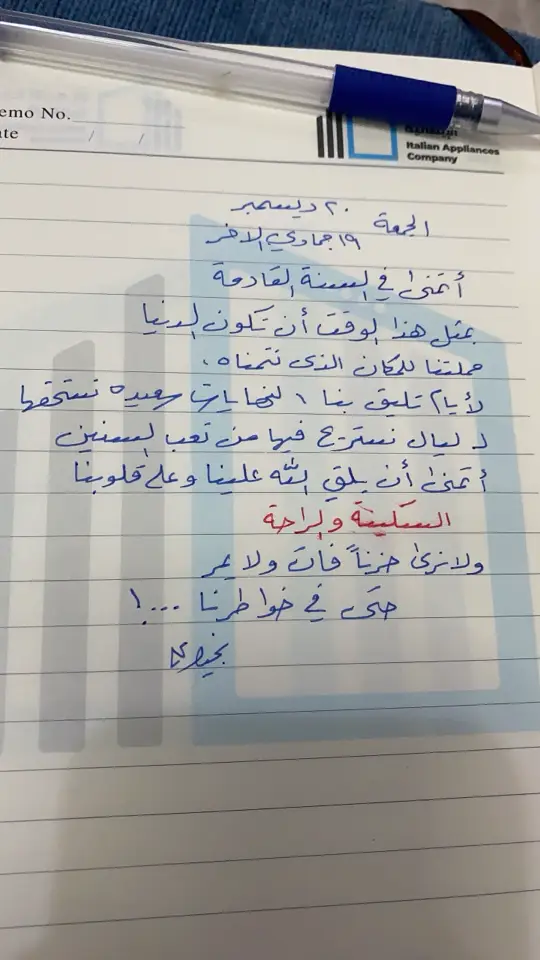 emo No.
ate / /
الإيطالية
Italian Appliances
Company
الجمعة ٢٠ ديسمبر
١٩ جمادي الاخر
أتمنى في السنة القادمة
بمثل هذا الوقت أن تكون الدنيا
حملتنا للمكان الذى نتمناه ،
لأيام تليق بنا ، لنهايات سعيده نستحقها
لـ ليال نستريح فيها من تعب السنين
أتمنى أن يلقي الله علينا وعلى قلوبنا
السكينة والراحة
ولا نرى حزناً فات ولا يمر
حتى في خواطرنا ...!